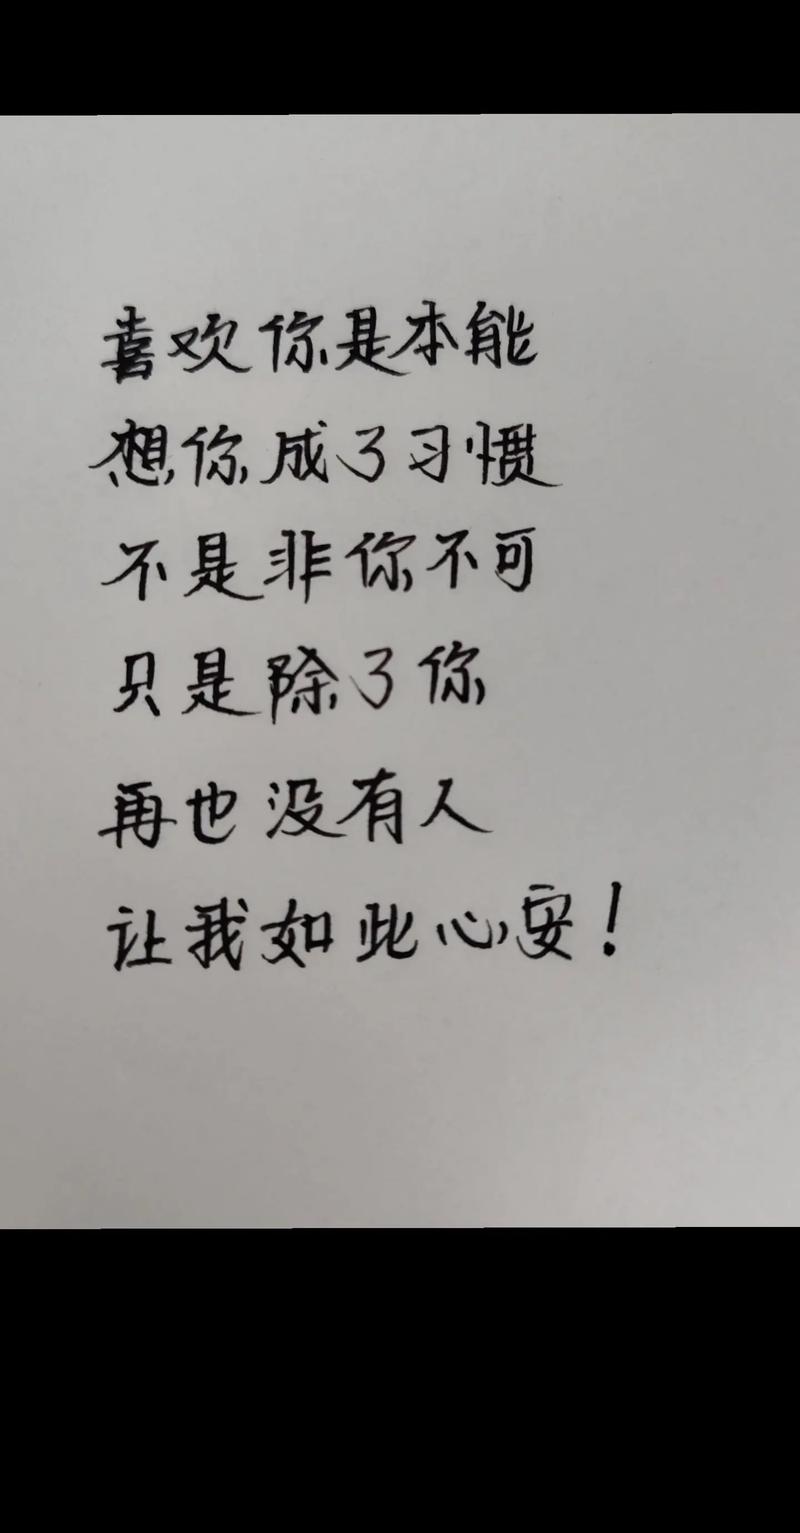 喜欢你是本能
想你成了习惯
不是非你不可
只是除了你
再也没有人
让我如此心安！